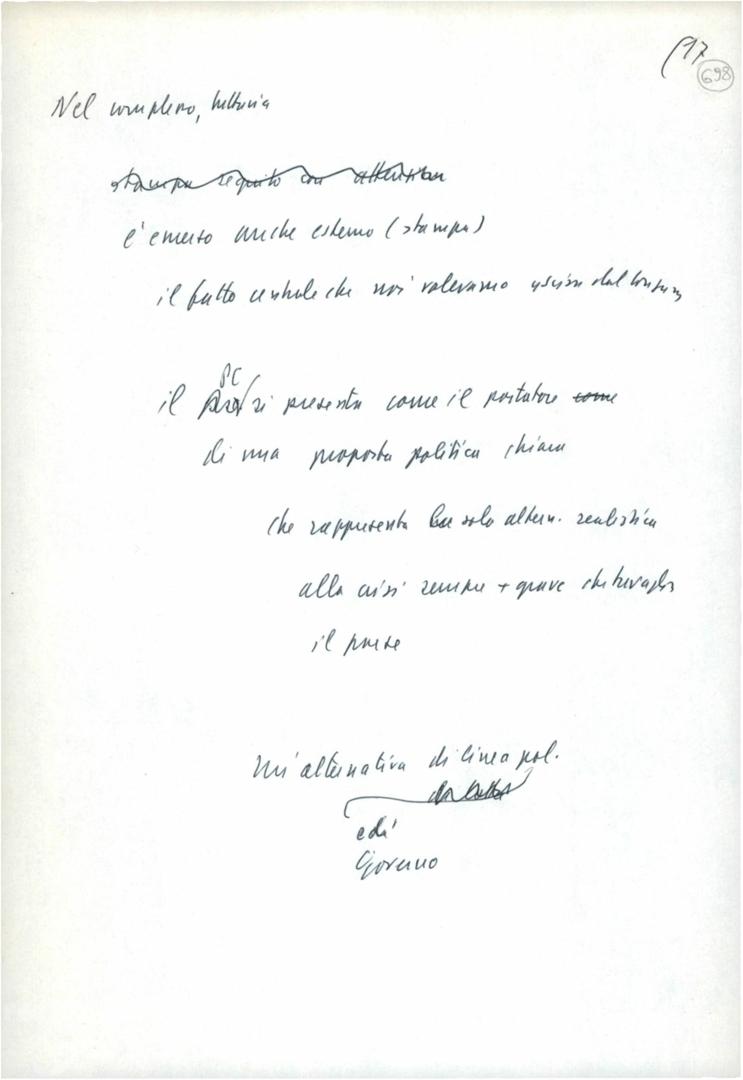 (17
698
Nel complesso, tuttavia
stampa seguito con attenzione
è emerso anche esterno (stampa)
il fatto centrale che noi volevamo uscire dal
PC
il si presenta come il portatore come
di una proposta politica chiara
che rappresenta la sola altern. realistica
alla crisi sempre + grave che travaglia
il paese
Un'alternativa di linea pol.
e di
Governo